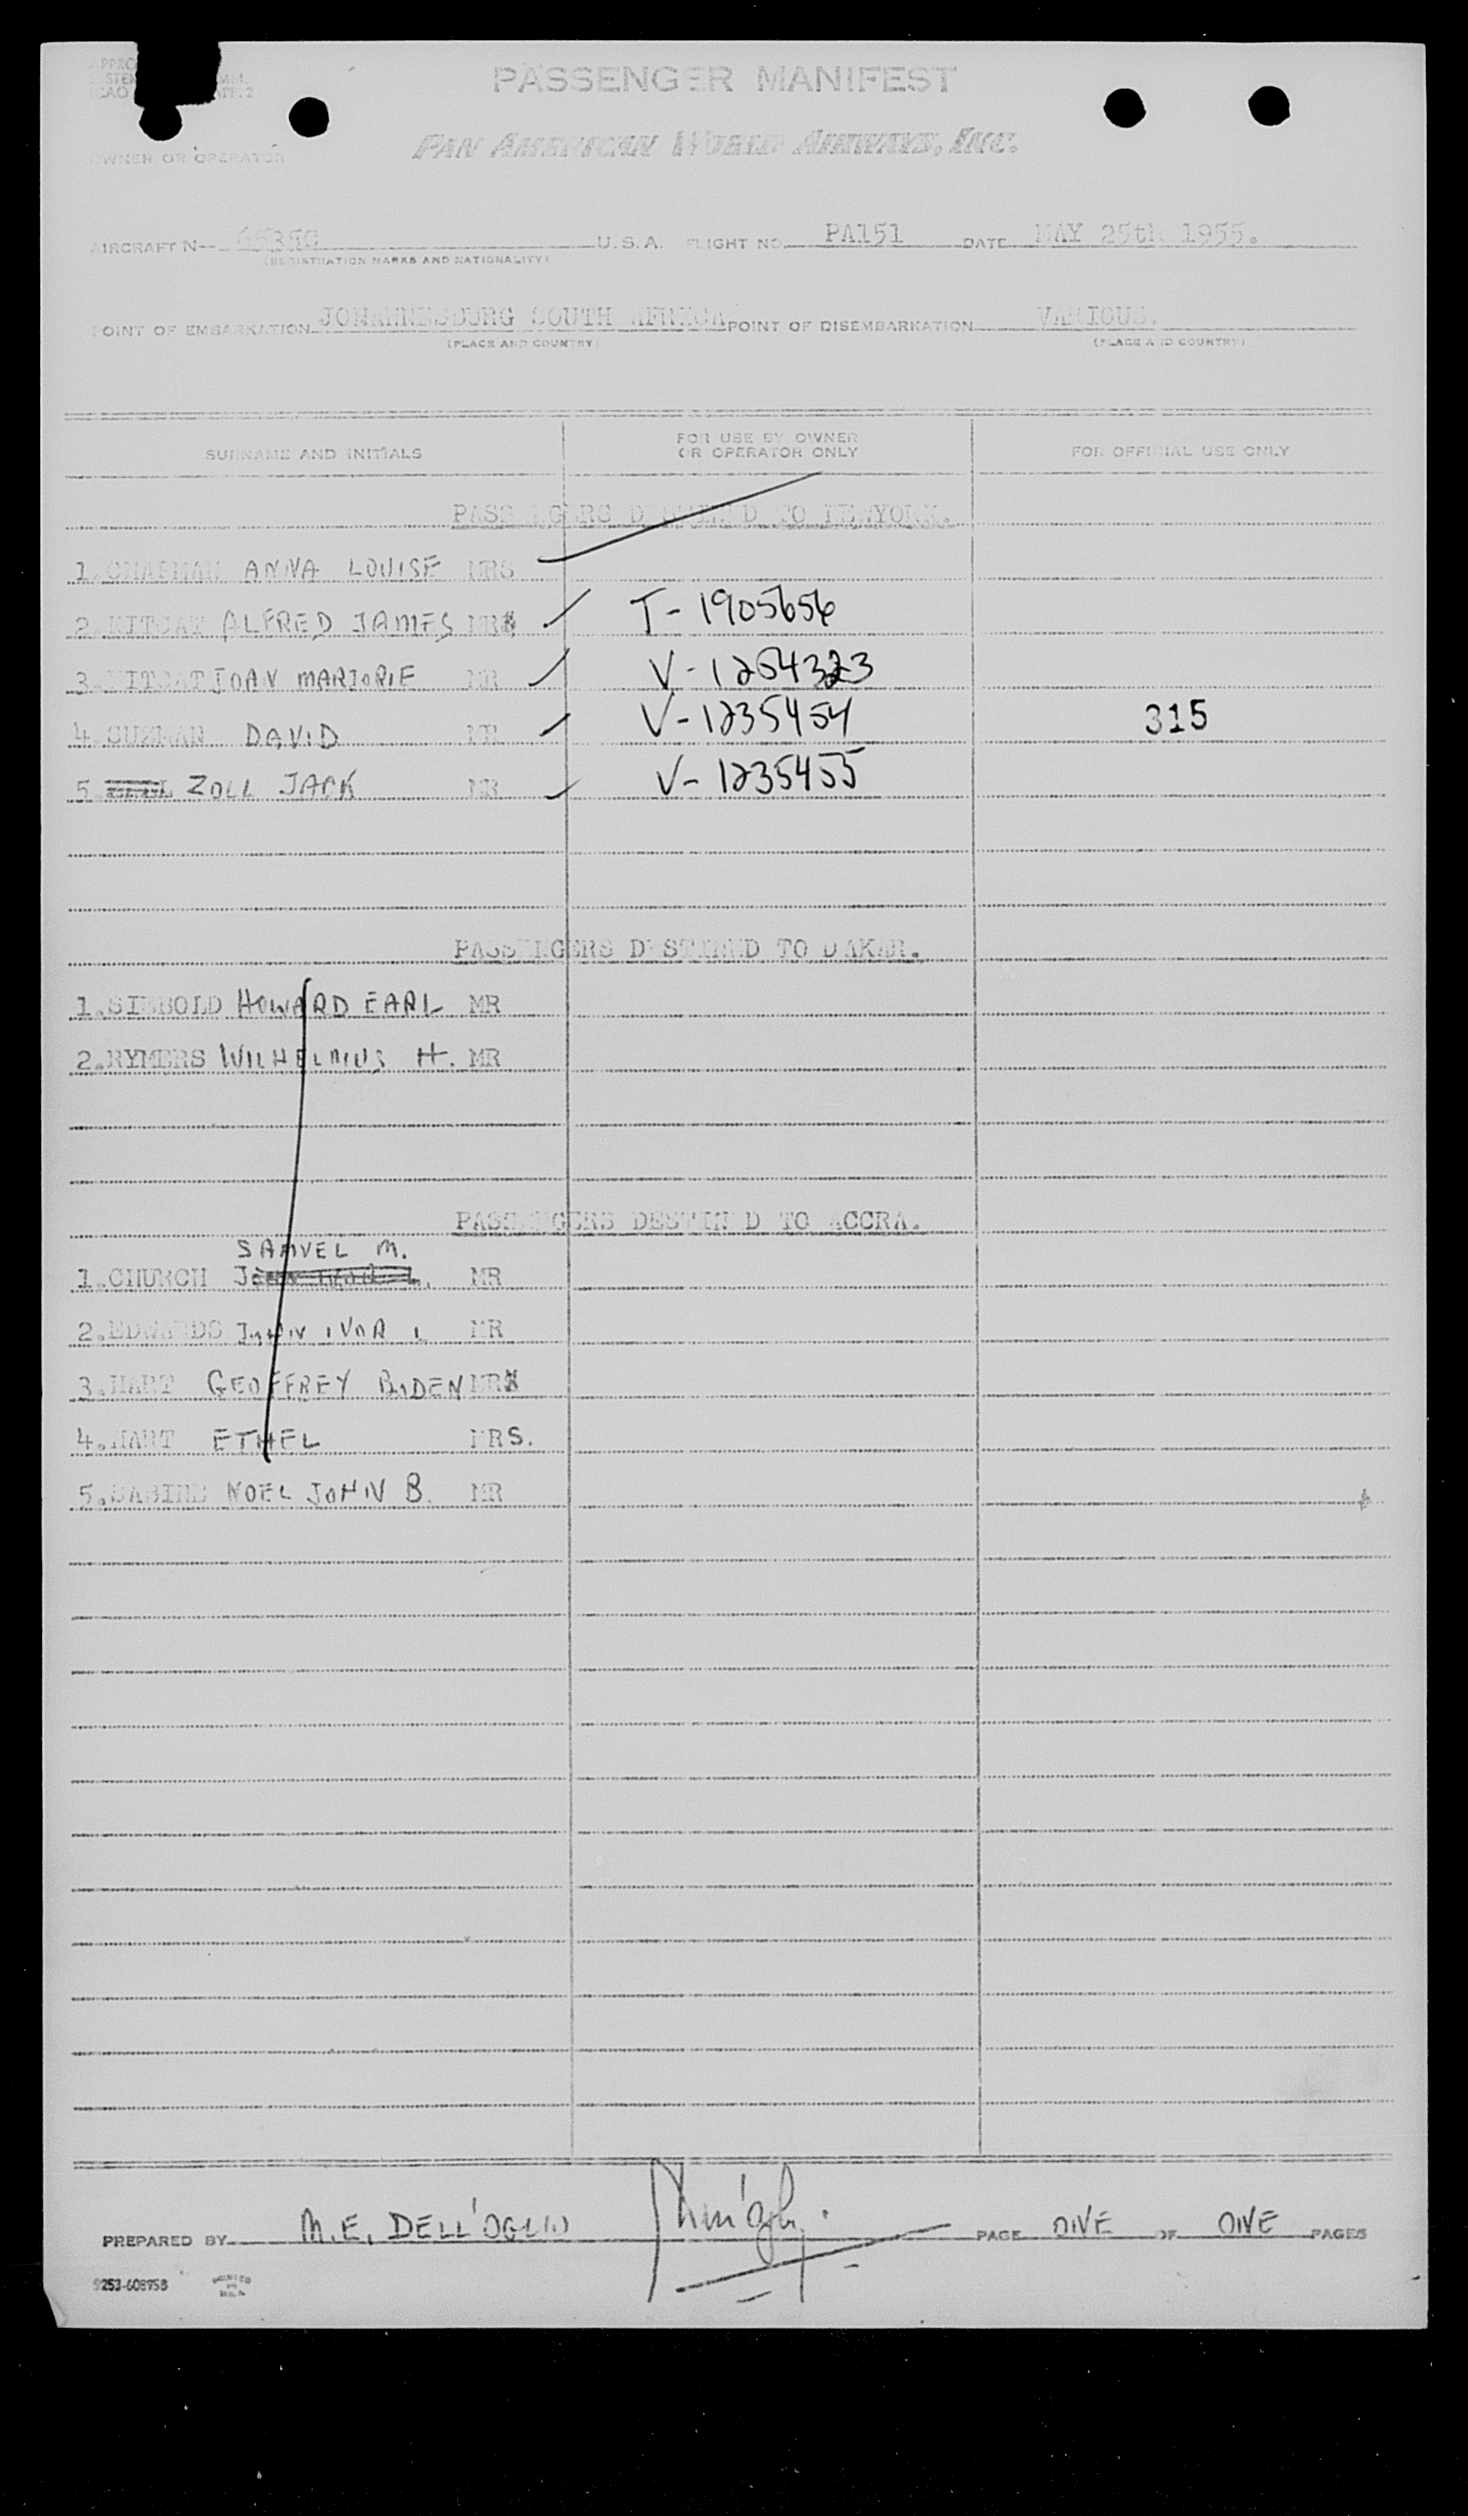 PASSENGER MANIFEST
PAN AMERICAN WORLD AIRWAYS, INC.
OWNER OR OPERATOR
AIRCRAFT N- U.S.A. FLIGHT NO. PA151 DATE MAY 25th 1955.
(REGISTRATION MARKS AND NATIONALITY)
POINT OF EMBARKATION JOHANNESBURG SOUTH AFRICA POINT OF DISEMBARKATION VARIOUS.
(PLACE AND COUNTRY) (PLACE AND COUNTRY)
SURNAME AND INITIALS FOR USE BY OWNER OR OPERATOR ONLY FOR OFFICIAL USE ONLY
PASSENGERS DESTINED TO NEWYORK.
1.CHAPMAN ANNA LOUISE MRS
2.KITCAT ALFRED JAMES MR T-1905656
3.KITCAT JOAN MARJORIE MR V-1254323
4.GUZMAN DAVID MR V-1235454 315
5. ZOLL JACK MR V-1235455
PASSENGERS DESTINED TO DAKAR.
1.SIEBOLD HOWARD EARL MR
2.RYMERS WILHELMUS H. MR
PASSENGERS DESTINED TO ACCRA.
SAMVEL M.
1.CHURCH MR
2.EDWARDS JOHN IVOR L MR
3.HART GEOFFREY BODEN MR
4.HART ETHEL MRS.
5.SABINE NOEL JOHN B. MR
PREPARED BY M.E. DELL'OGLIO PAGE ONE OF ONE PAGES
9253-608958 PRINTED IN U.S.A.